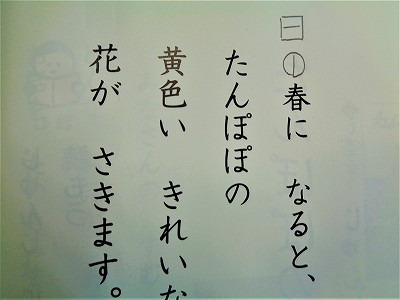 ㊀ ①春に なると、
たんぽぽの
黄色い きれいな
花が さきます。